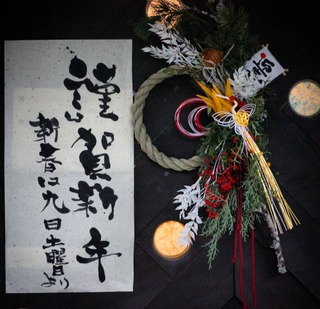 謹賀新年
新春は九日土曜日より